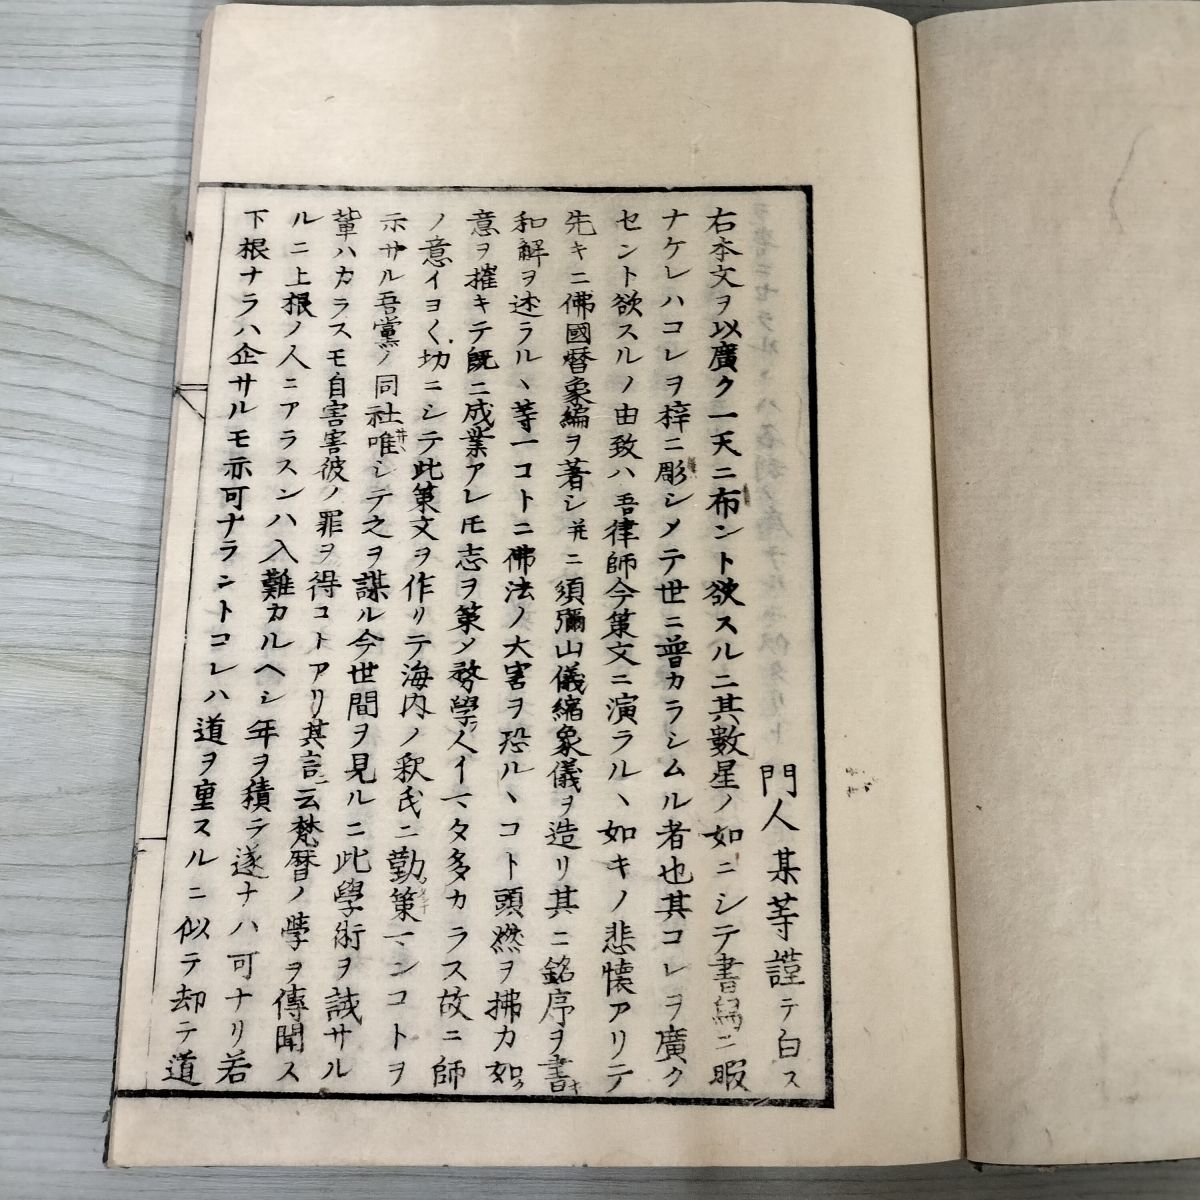 門人某等謹テ白ス
右本文ヲ以廣ク一天ニ布ント欲スルニ其數星ノ如ニシテ書編ニ暇
ナケレハコレヲ梓ニ彫シメテ世ニ普カラシムル者也其コレヲ廣ク
セント欲スルノ由致ハ吾律師今策文ニ演ラルヽ如キノ悲懐アリテ
先キニ佛國暦象編ヲ著シ并ニ須彌山儀縮象儀ヲ造リ其ニ銘序ヲ書キ
和解ヲ述ラルヽ等一コトニ佛法ノ大害ヲ恐ルヽコト頭燃ヲ拂カ如ク
意ヲ摧キテ既ニ成業アレモ志ヲ策メ務學人イマタ多カラス故ニ師
ノ意イヨ〱切ニシテ此策文ヲ作リテ海内ノ釈氏ニ勤策センコトヲ
示サル吾黨ノ同社唯シテ之ヲ謀ル今世間ヲ見ルニ此學術ヲ誠サル
輩ハカラスモ自害害彼ノ罪ヲ得コトアリ其言云梵暦ノ学ヲ傳聞ス
ルニ上根ノ人ニアラスンハ入難カルヘシ年ヲ積テ遂ナハ可ナリ若
下根ナラハ企サルモ亦可ナラントコレハ道ヲ重スルニ似テ却テ道